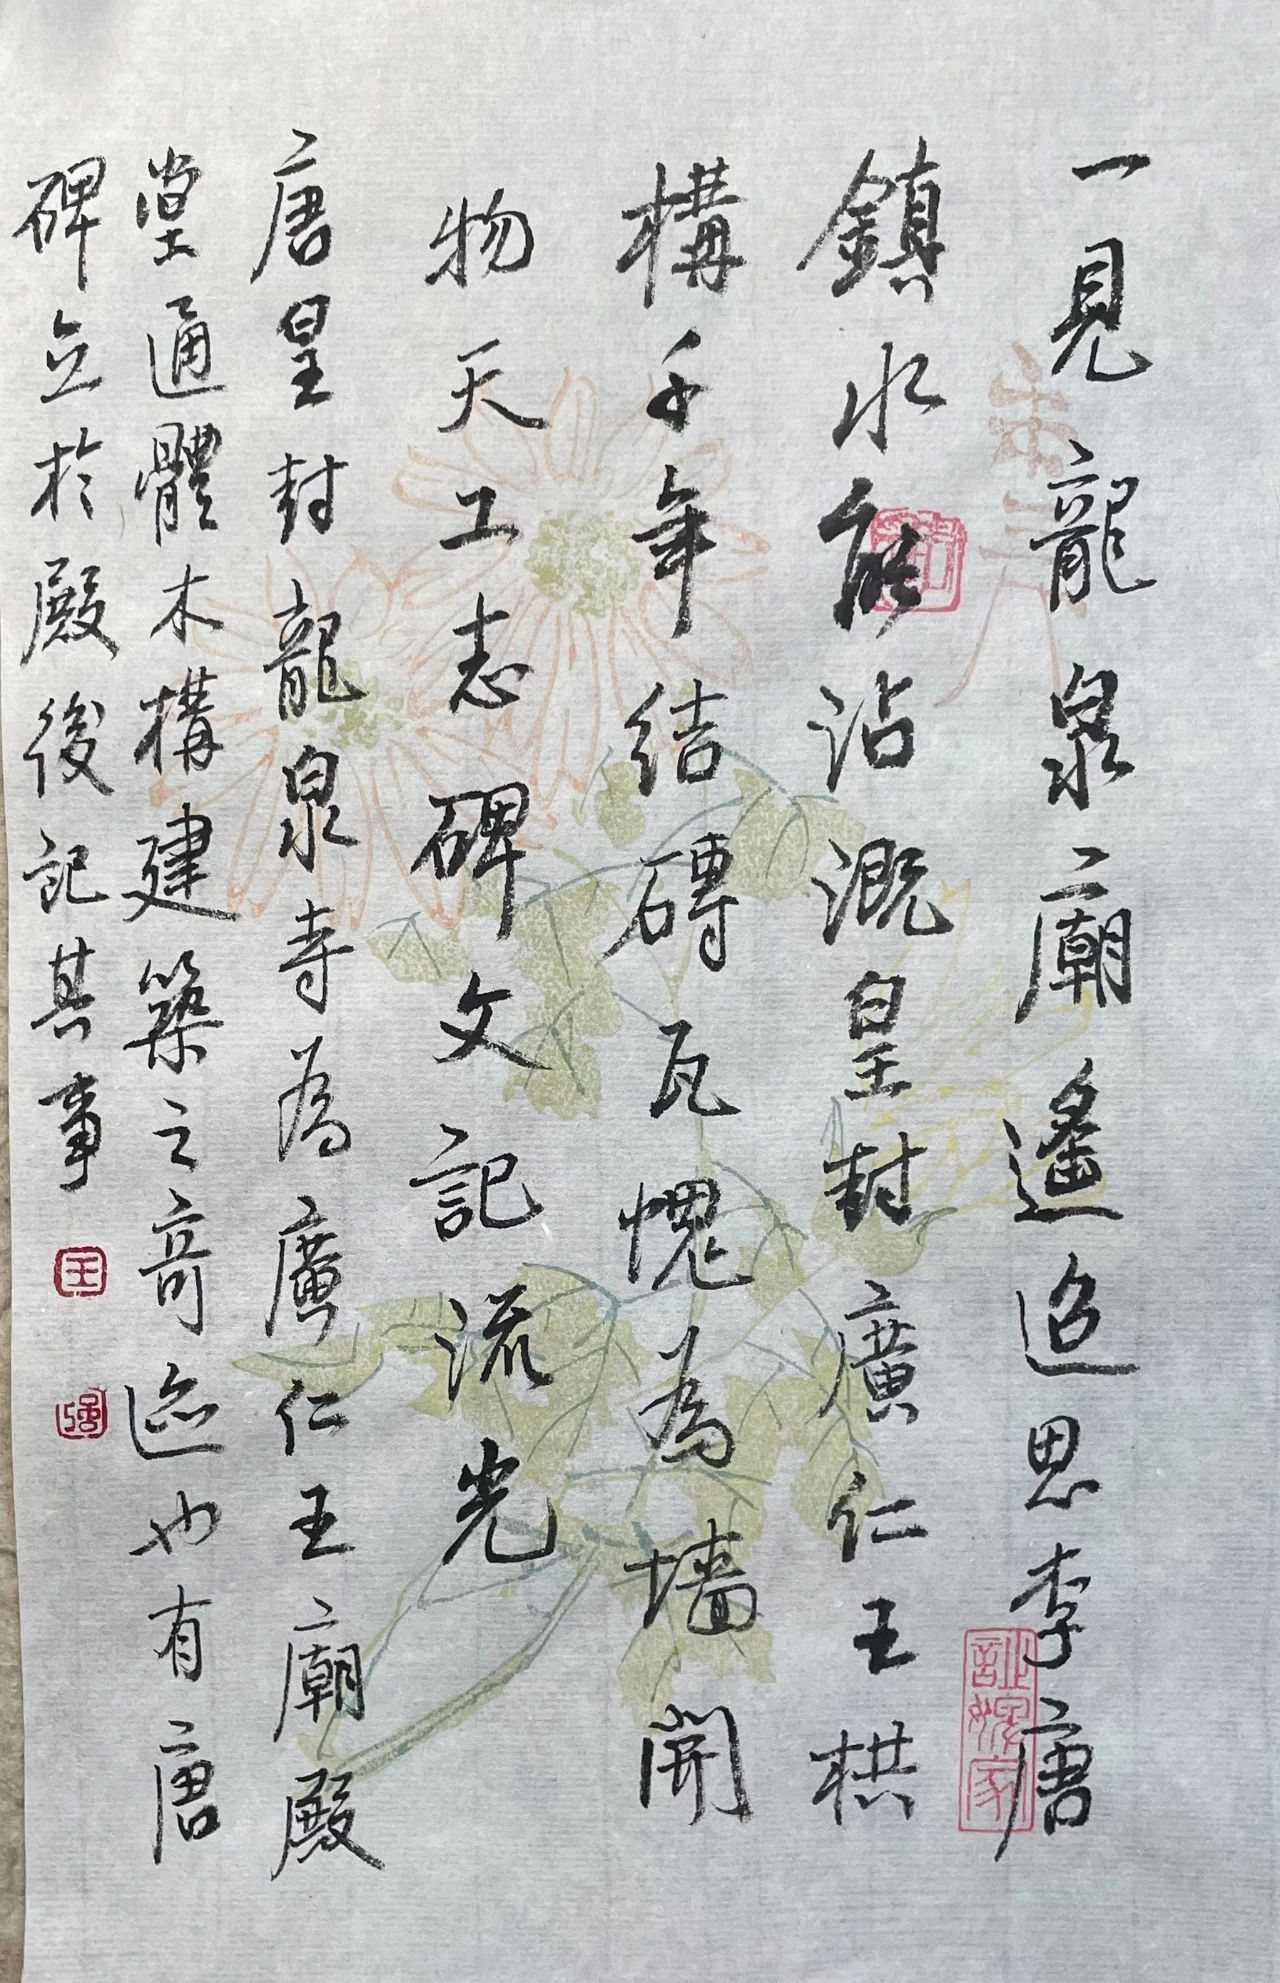 一見龍泉廟遙追思李唐
鎮水能沾溉皇封廣仁王栱
構千年結磚瓦愧為墻開
物天工志碑文記流光
唐皇封龍泉寺為廣仁王廟殿
堂通體木構建築之奇迹也有唐
碑立於殿後記其事
王